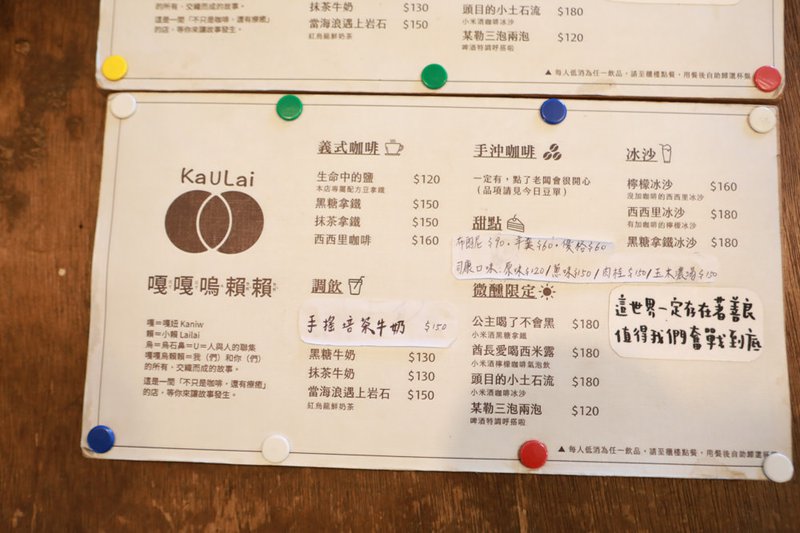 的所有，交織而成的故事。
這是一間「不只是咖啡，還有療癒」
的店，等你來讓故事發生。
抹茶牛奶 $130
當海浪遇上岩石 $150
紅烏龍鮮奶茶
頭目的小土石流 $180
小米酒咖啡冰沙
某勒三泡兩泡 $120
啤酒特調呼搭啦
▲ 每人低消為任一飲品，請至櫃檯點餐，用餐後自助歸還杯盤
KaULai
嘎嘎嗚賴賴
嘎=嘎妞 Kaniw
賴=小賴 Lailai
烏=烏石鼻=U=人與人的聯集
嘎嘎烏賴賴=我（們）和你（們）
的所有，交織而成的故事。
這是一間「不只是咖啡，還有療癒」
的店，等你來讓故事發生。
義式咖啡
生命中的鹽 $120
本店專屬配方豆拿鐵
黑糖拿鐵 $150
抹茶拿鐵 $150
西西里咖啡 $160
調飲
手搖焙茶牛奶 $150
黑糖牛奶 $130
抹茶牛奶 $130
當海浪遇上岩石 $150
紅烏龍鮮奶茶
手沖咖啡
一定有，點了老闆會很開心
（品項請見今日豆單）
甜點
布朗尼 $90．平葉$60．優格$60
司康口味：原味$120/蔥味$150/肉桂$150/五木農場$150
微醺限定
公主喝了不會黑 $180
小米酒黑糖拿鐵
酋長愛喝西米露 $180
小米酒檸檬咖啡氣泡飲
頭目的小土石流 $180
小米酒咖啡冰沙
某勒三泡兩泡 $120
啤酒特調呼搭啦
冰沙
檸檬冰沙 $160
沒加咖啡的西西里冰沙
西西里冰沙 $180
有加咖啡的檸檬冰沙
黑糖拿鐵冰沙 $180
這世界一定存在著善良
值得我們奮戰到底
▲ 每人低消為任一飲品，請至櫃檯點餐，用餐後自助歸還杯